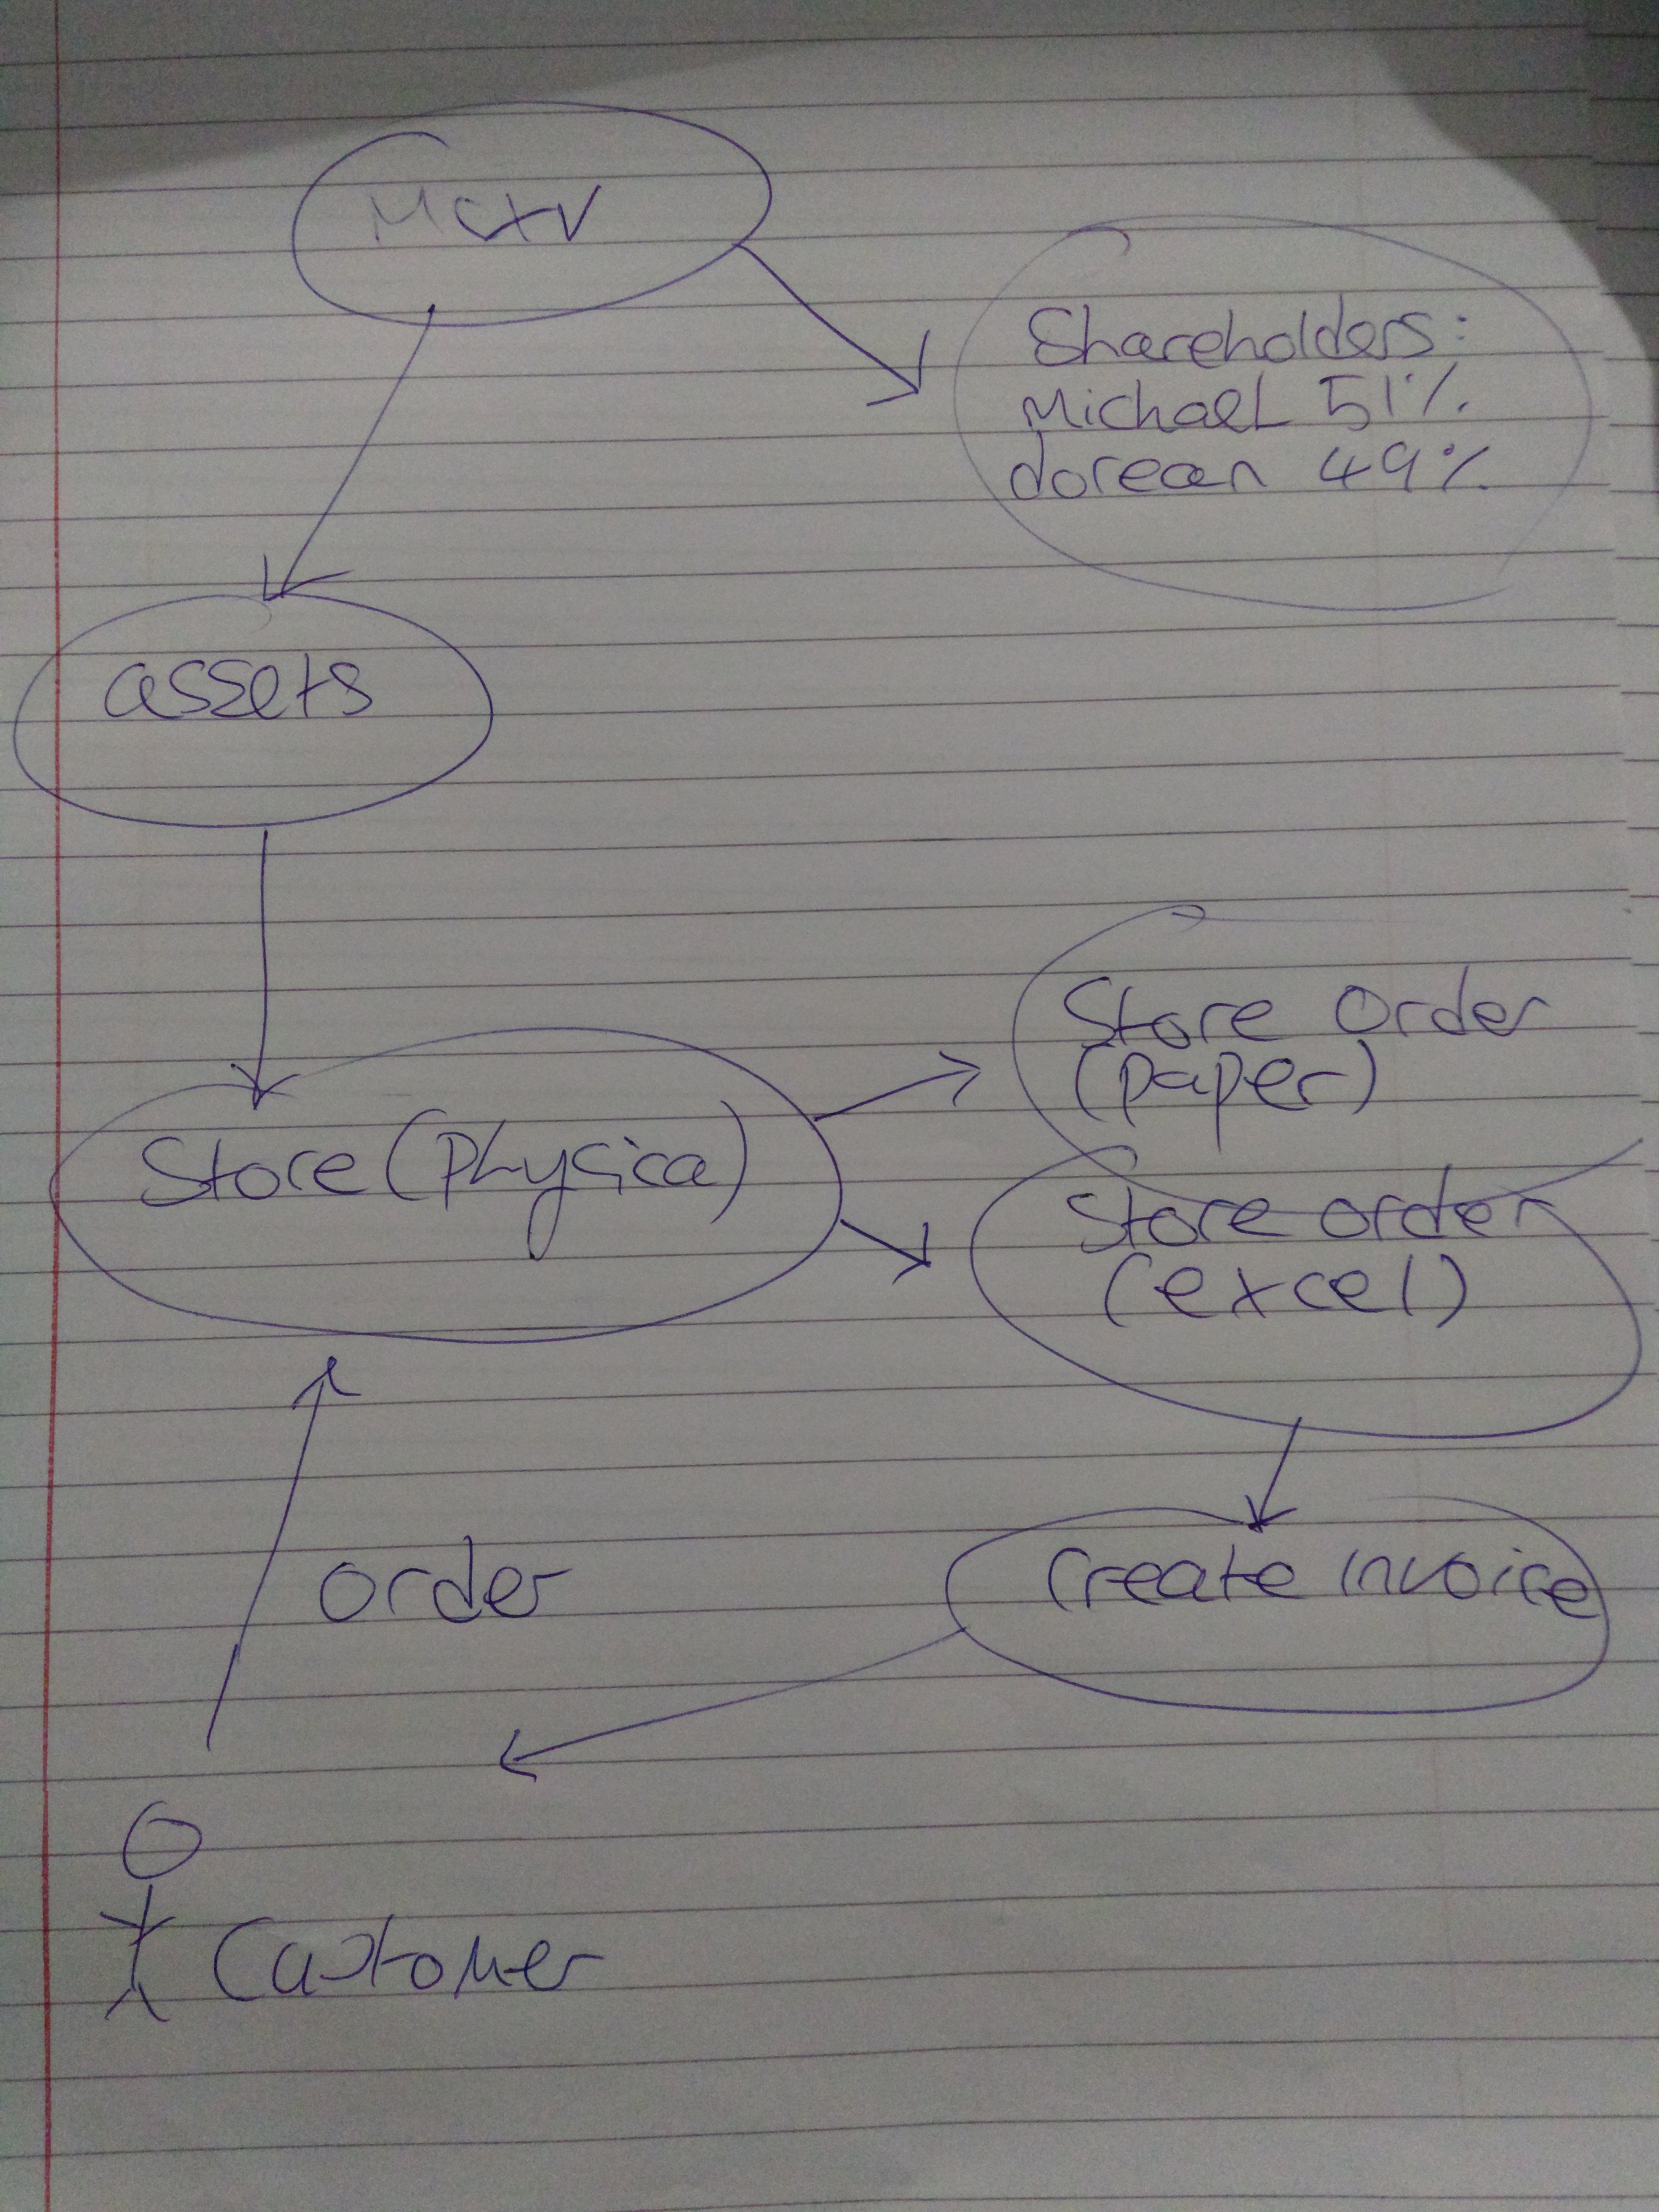 MCXV
Shareholders:
Michael 51%
dorean 49%
assets
Store Order
(paper)
Store (physica)
Store order
(excel)
order
Create invoice
Customer